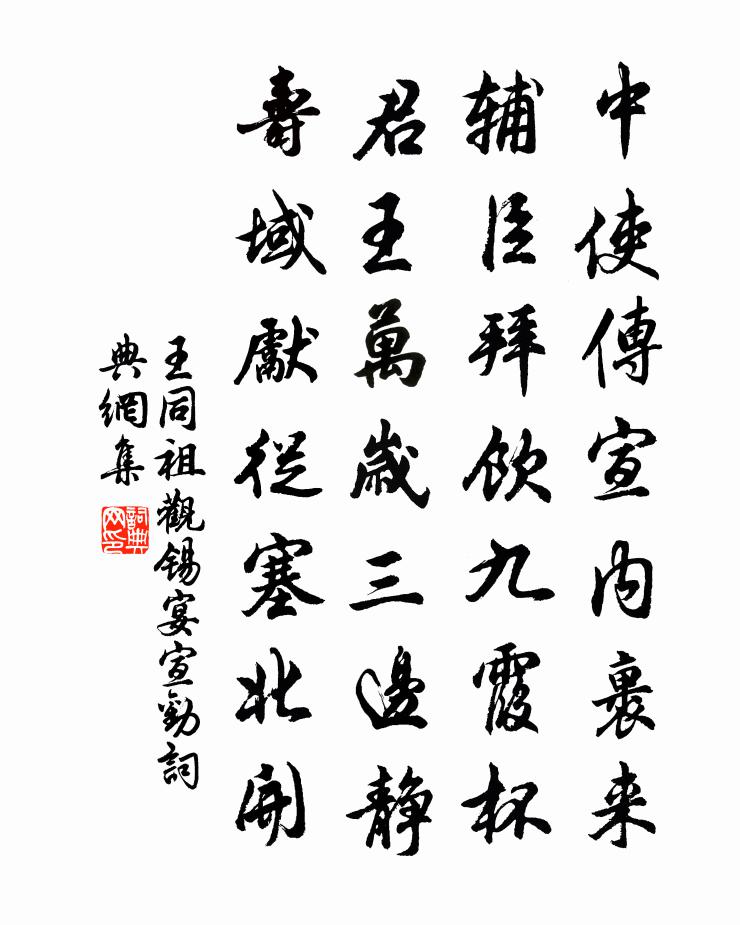 中使傳宣内裏来
辅臣拜飲九霞杯
君王萬歲三邊静
壽域獻從塞北開
王同祖觀錫宴宣勸詞
典網集
詞典网印